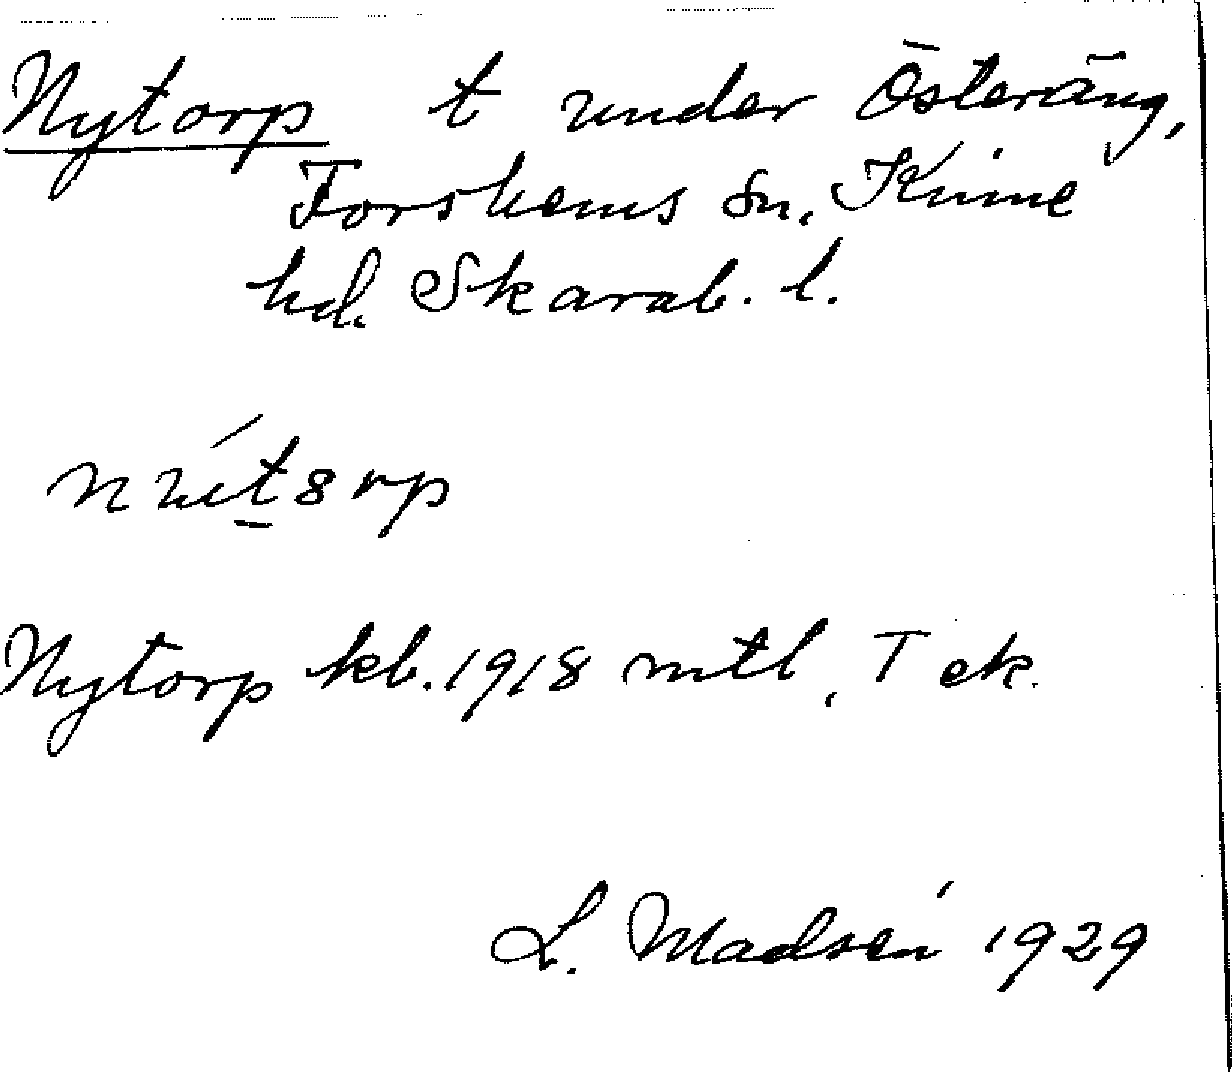 Nytorp t under Österäng,
Forshems sn. Kinne
hd. Skarab. l.
Nytorp kb. 1918 mtl, T ek.
L. Madsén 1929